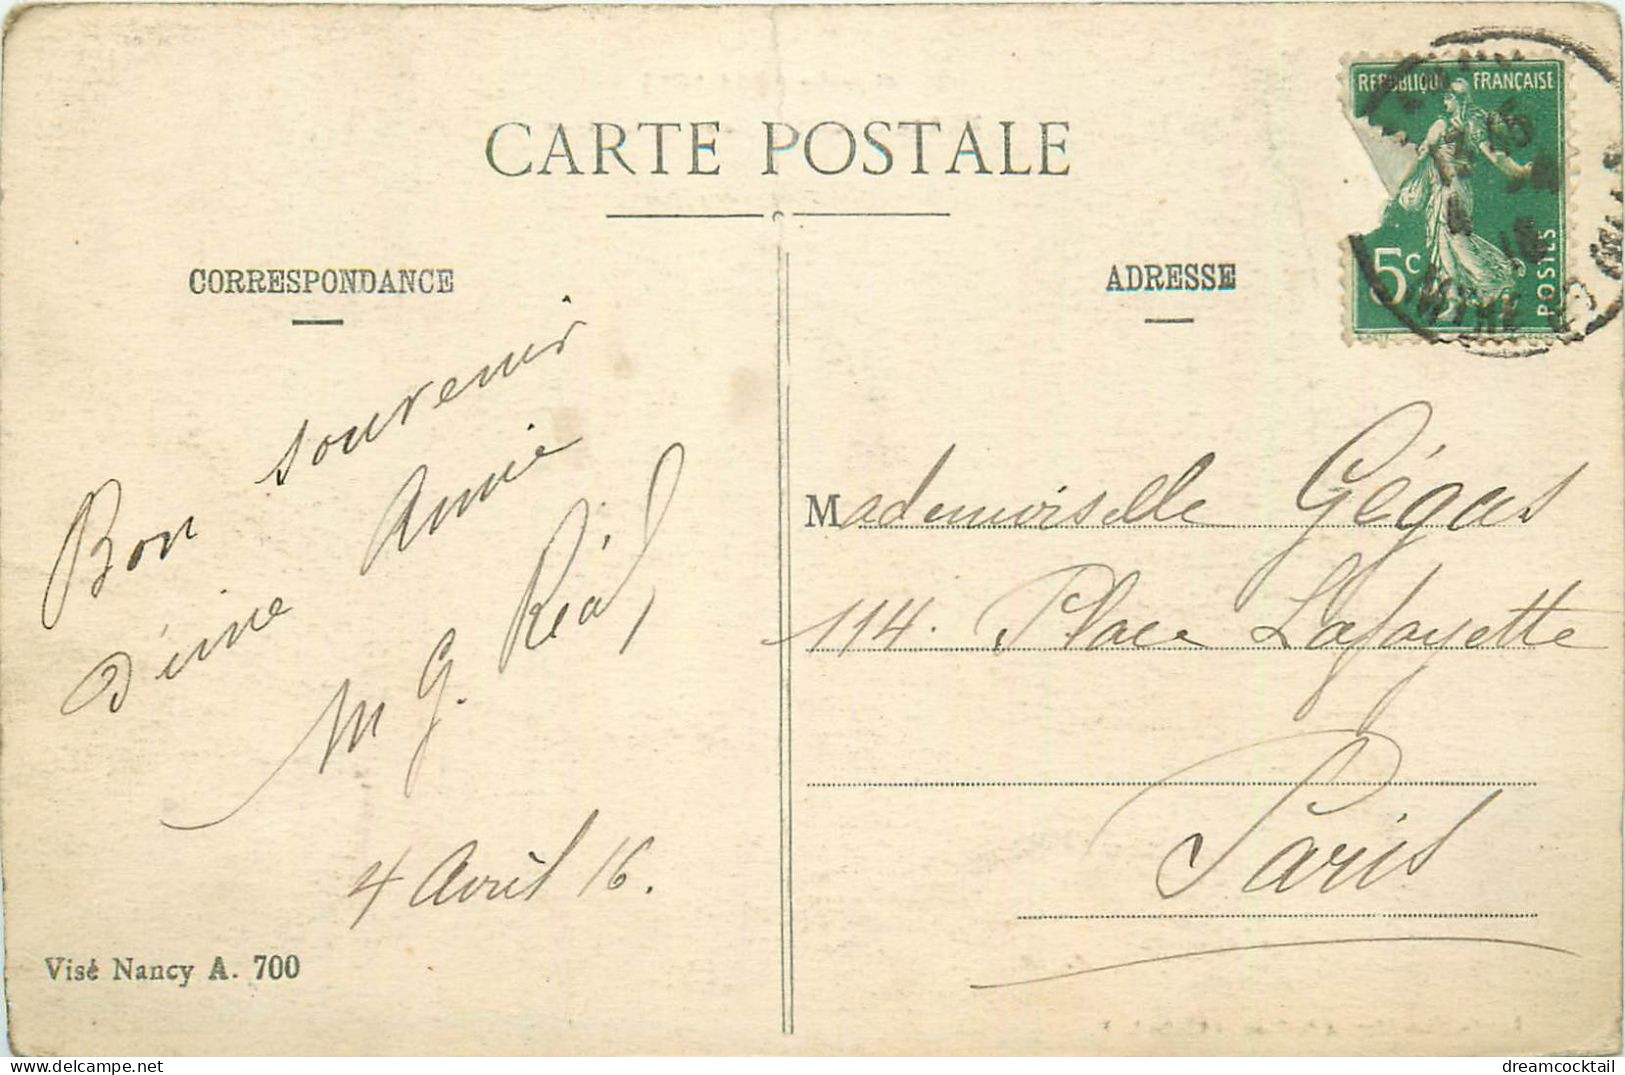 CARTE POSTALE
CORRESPONDANCE
ADRESSE
RÉPUBLIQUE FRANÇAISE
5c
POSTES
17 45
4
16
Bon souvenir
d'une Amie
M G. Réal,
4 Avril 16.
Mademoiselle Gégus
114. Place Lafayette
Paris
Visé Nancy A. 700
dreamcocktail